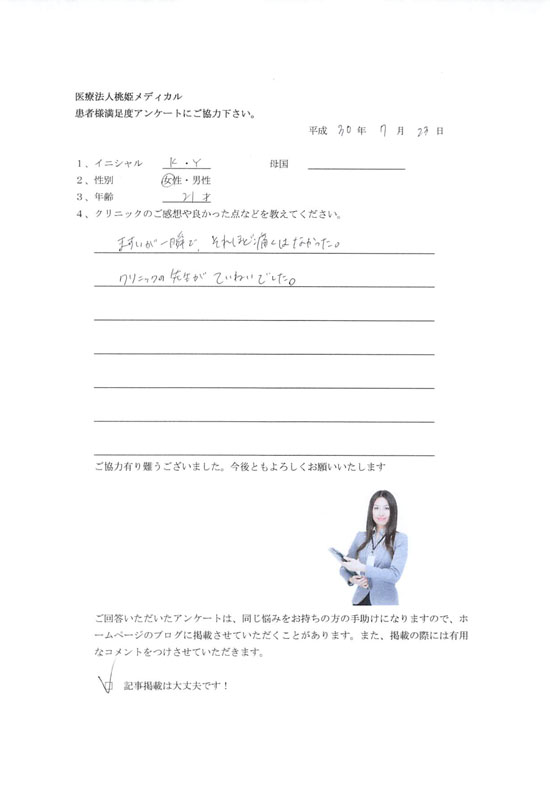 医療法人桃姫メディカル
患者様満足度アンケートにご協力下さい。
平成 30 年 7 月 23 日
1、イニシャル K・Y 母国
2、性別 女性・男性
3、年齢 21才
4、クリニックのご感想や良かった点などを教えてください。
ますいが一瞬で、それほど痛くはなかった。
クリニックの先生がていねいでした。
ご協力有り難うございました。今後ともよろしくお願いいたします
ご回答いただいたアンケートは、同じ悩みをお持ちの方の手助けになりますので、ホ
ームページのブログに掲載させていただくことがあります。また、掲載の際には有用
なコメントをつけさせていただきます。
記事掲載は大丈夫です！